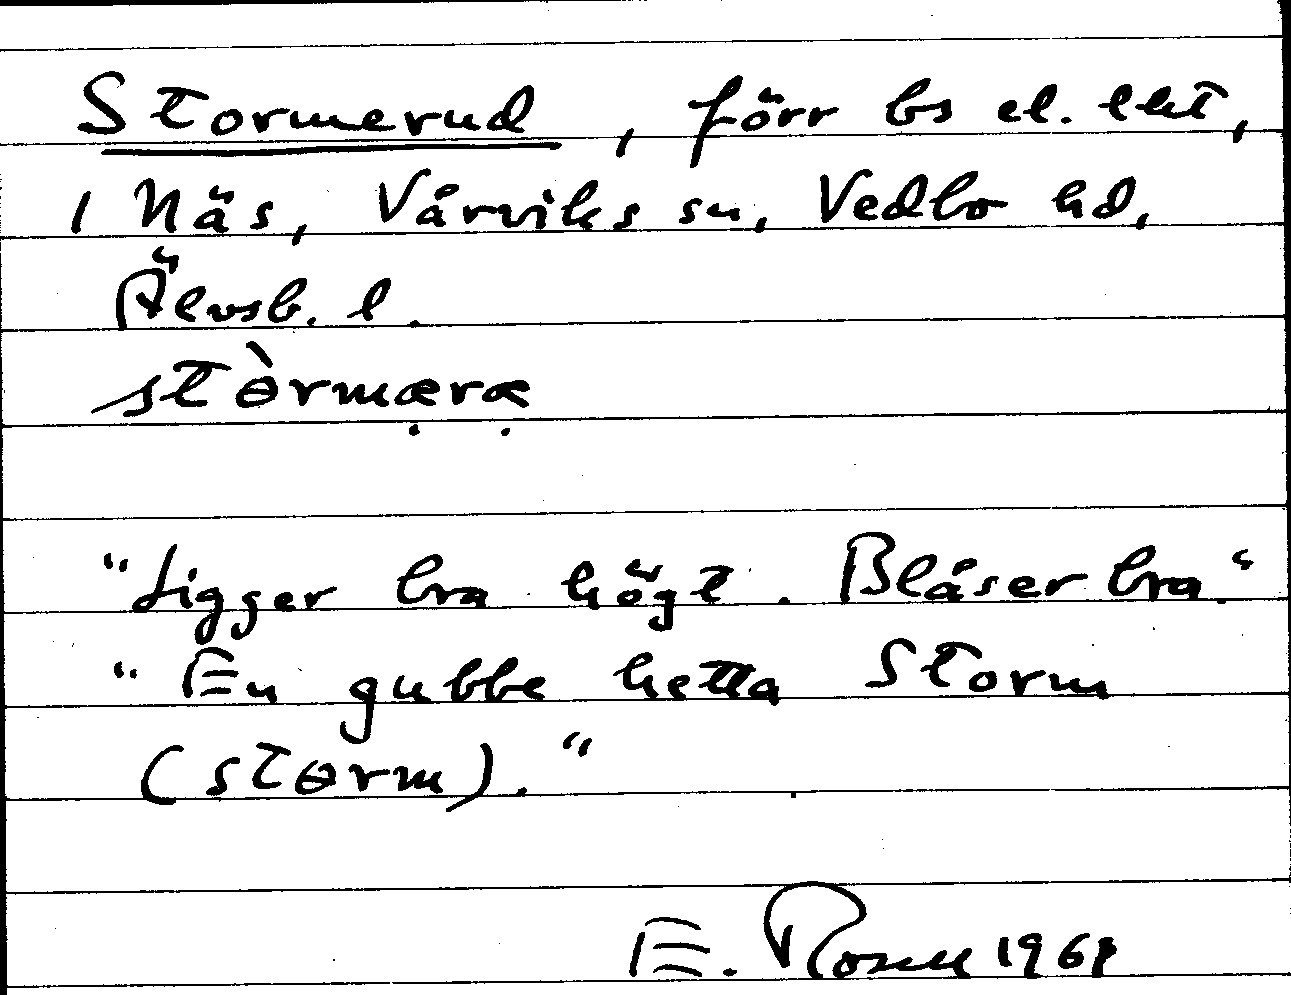 Stormerud, förr bs el. lht,
i Näs, Vårviks sn, Vedbo hd,
Älvsb. l.
stɵ̀rmæ̣ræ̣
"Ligger bra högt. Blåser bra."
"En gubbe hetta Storm
(stɵrm)."
E. Rosell